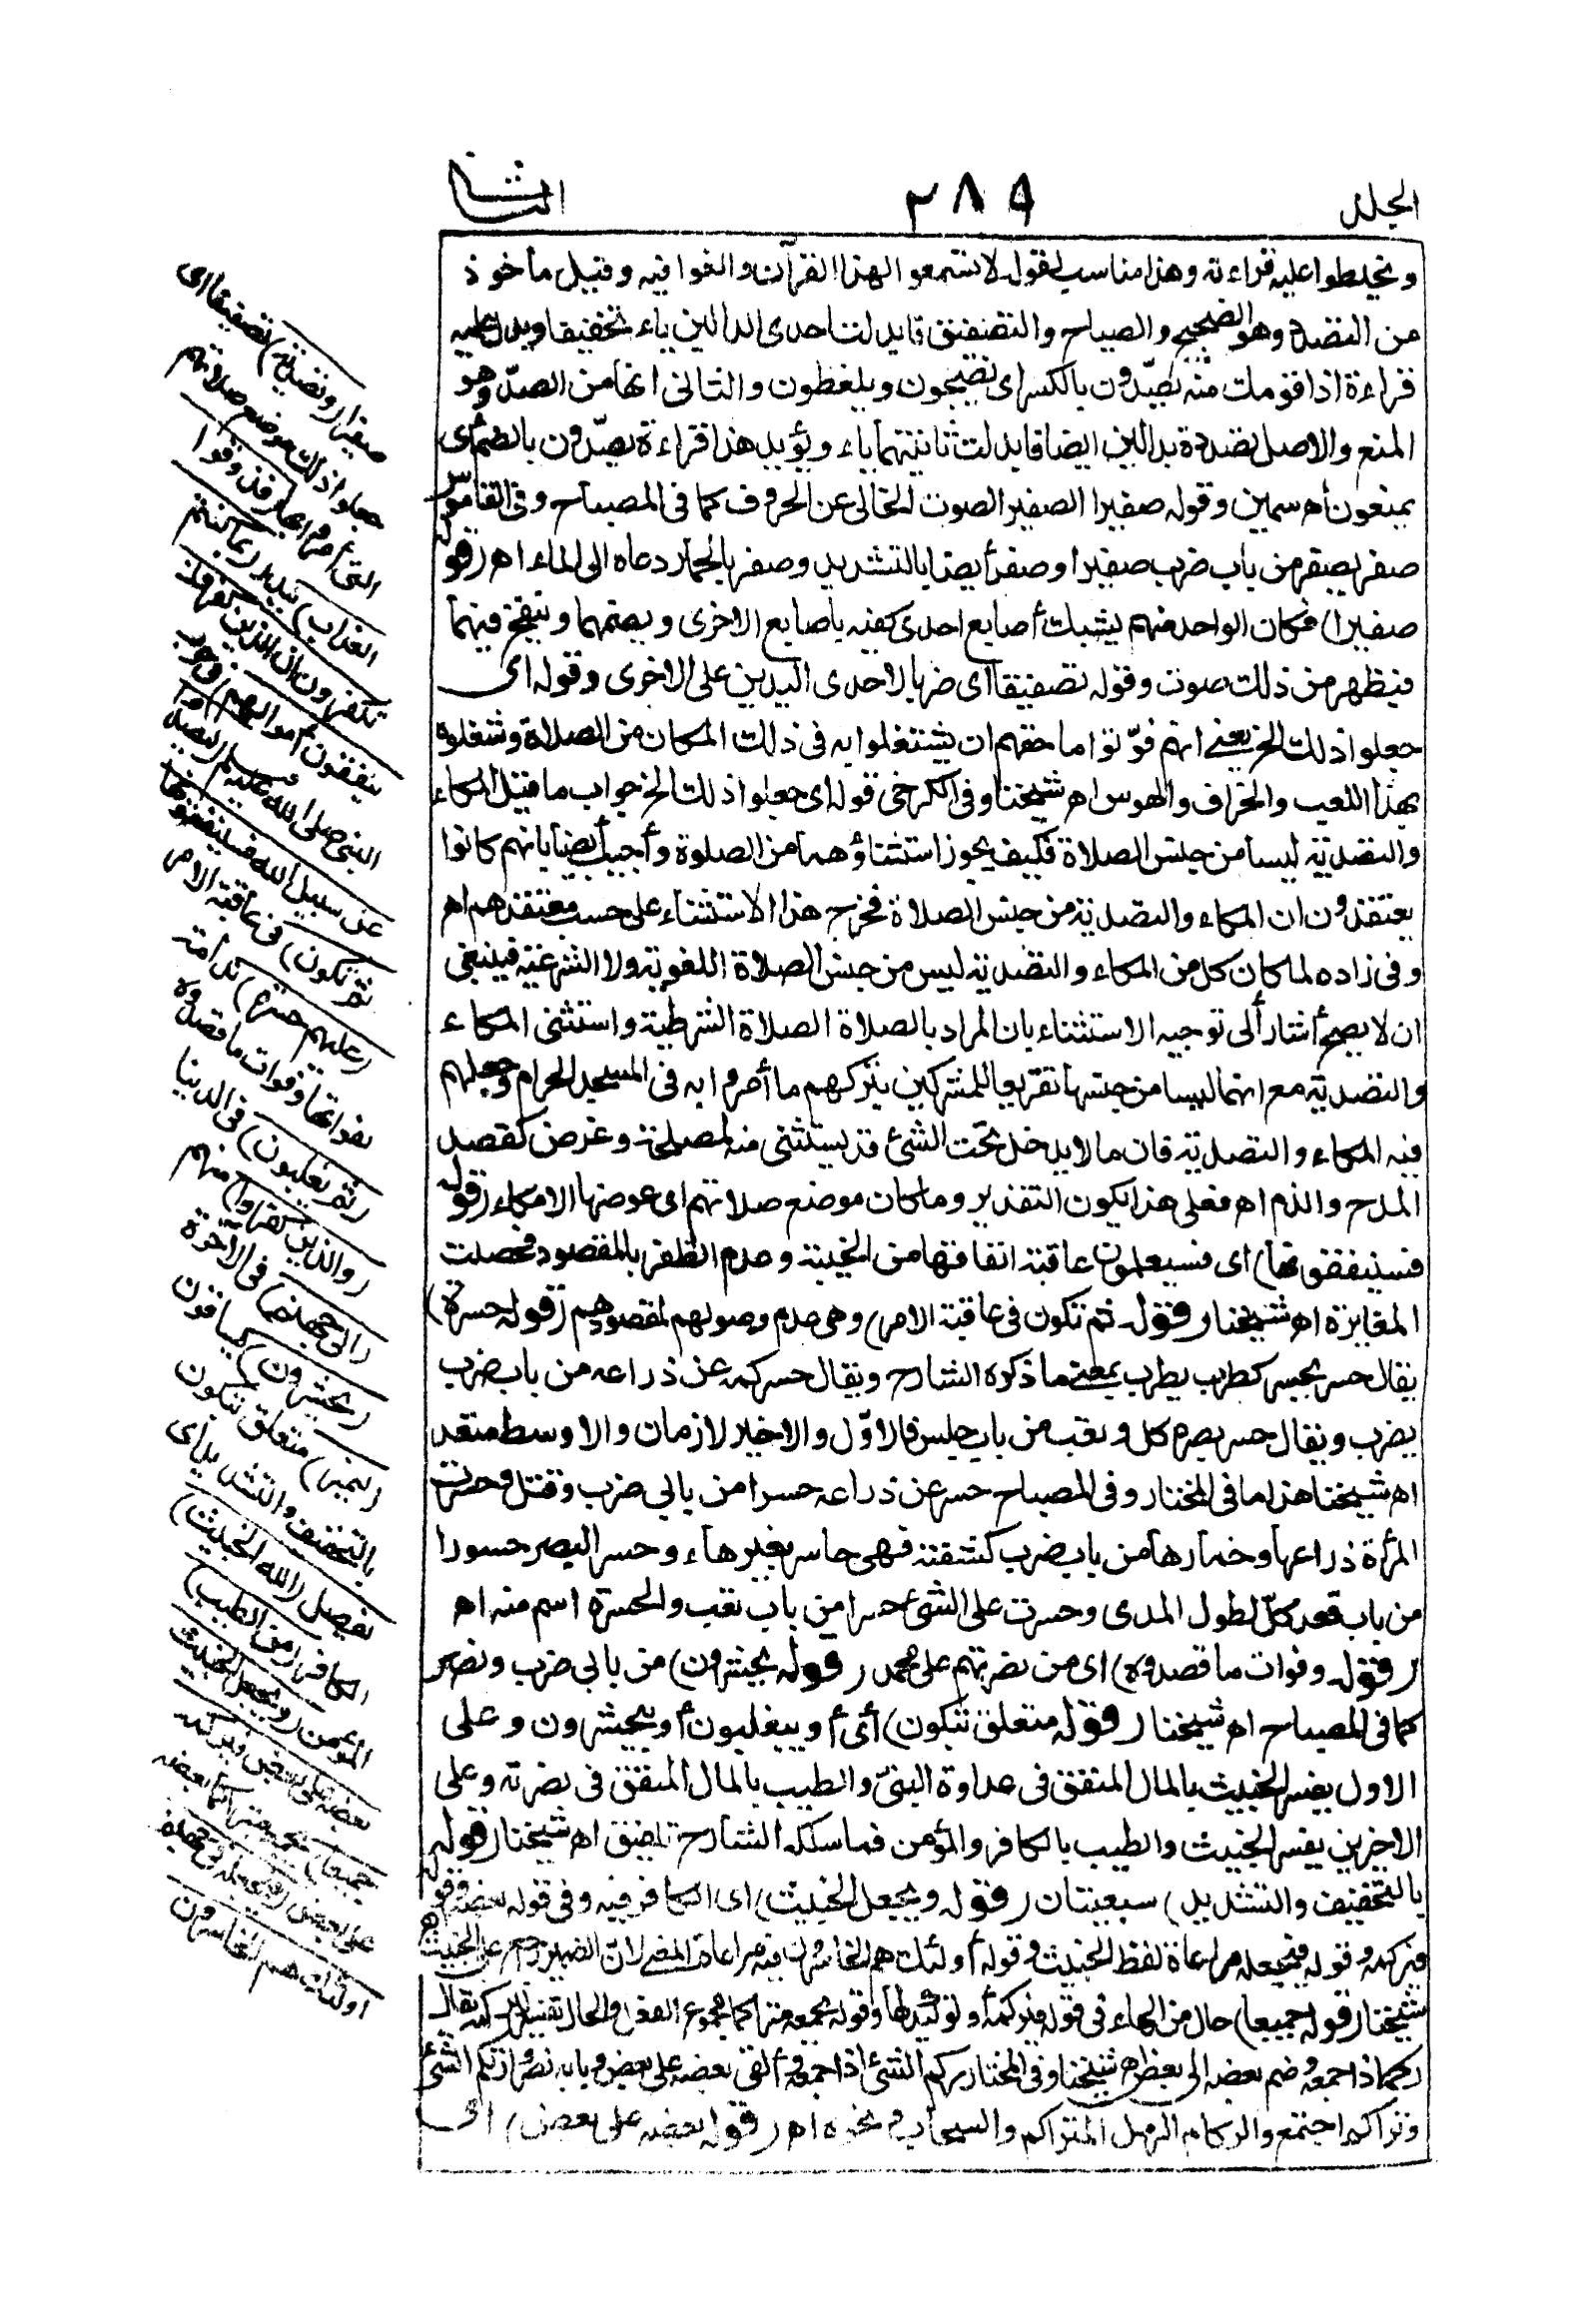 الجلد
٢٨٩
الثانى
ويخلطوا عليه قراءته وهذا مناسب لقوله لا تسمعوا لهذا القرآن والغوا فيه وقيل مأخوذ
من التصدد وهو الضجيج والصياح والتصفيق فابدلت احدى الدالين ياء تخفيفا ويدل عليه
قراءة اذا قومك منه يصدون بالكسر اى يضجون ويلغطون والثانى انها من الصد وهو
المنع والاصل تصددة بدالين ايضا فابدلت ثانيتهما ياء ويؤيد هذا قراءة يصدون بالضم أى
يمنعون اه سمين وقوله صفيرا الصفير الصوت الخالى عن الحروف كما فى المصباح وفى القاموس
صفر يصفر من باب ضرب صفيرا وصفر أيضا بالتشديد وصفر بالحمار دعاه الى الماء اه (قوله
صفيرا) فكان الواحد منهم يشبك أصابع احدى كفيه باصابع الاخرى ويضمهما وينفخ فيهما
فيظهر من ذلك صوت وقوله تصفيقا أى ضربا لاحدى اليدين على الاخرى وقوله اى
جعلوا ذلك الخ يعنى انهم فوّتوا ما حقهم ان يشتغلوا به فى ذلك المكان من الصلاة وشغلوه
بهذا اللعب والخراف والهوس اه شيخنا وفى الكرخى قوله اى جعلوا ذلك الخ جواب ما قيل المكاء
والتصدية ليسا من جنس الصلاة فكيف يجوز استثناؤهما من الصلوة وأجيب ايضا بانهم كانوا
يعتقدون ان المكاء والتصدية من جنس الصلاة فخرج هذا الاستثناء على حسب معتقدهم اه
وفى زاده لما كان كل من المكاء والتصدية ليس من جنس الصلاة اللغوية ولا الشرعية فينبغى
ان لا يصح أشار ألى توجيه الاستثناء بان المراد بالصلاة الصلاة الشرطية واستثنى المكاء
والتصدية مع انهما ليسا من جنسها تقريعا للمشركين بتركهم ما أمروا به فى المسجد الحرام وجعلهم
فيه المكاء والتصدية فان ما لا يدخل تحت الشئ قد يستثنى منه لمصلحة وغرض كقصد
المدح والذم اه فعلى هذا يكون التقدير وما كان موضع صلاتهم اى عوضها الا مكاء (قوله
فسينفقونها) اى فسيعلمون عاقبة انفاقها من الخيبة وعدم الظفر بالمقصود فحصلت
المغايرة اه شيخنا (قوله ثم تكون فى عاقبة الامر) وهى عدم وصولهم لمقصودهم (قوله حسرة)
يقال حسر يحسر كطرب يطرب بمعنى ما ذكره الشارح ويقال حسر كمه عن ذراعه من باب ضرب
يضرب ويقال حسر بصره كل وتعب من باب جلس فالاوّل والاخير لازمان والاوسط متعد
اه شيخنا هذا ما فى المختار وفى المصباح حسر عن ذراعه حسرا من بابى ضرب وقتل وحسرت
المرأة ذراعها وخمارها من باب ضرب كشفته فهى حاسر بغير هاء وحسر البصر حسورا
من باب قعد كلّ لطول المدى وحسرت على الشئ حسرا من باب تعب والحسرة اسم منه اه
(قوله وفوات ما قصدوه) اى من نصرتهم على محمد (قوله يحشرون) من بابى ضرب ونصر
كما فى المصباح اه شيخنا (قوله متعلق بتكون) أى أو بيغلبون أو بيحشرون وعلى
الاول يفسر الخبيث بالمال المنفق فى عداوة النبىّ والطيب بالمال المنفق فى نصرته وعلى
الاخيرين يفسر الخبيث والطيب بالكافر والمؤمن فما سلكه الشارح تلفيق اه شيخنا (قوله
بالتخفيف والتشديد) سبعيتان (قوله ويجعل الخبيث) اى الكافر فيه وفى قوله بعضه وقوله
فيركمه وقوله فيجعله مراعاة لفظ الخبيث وقوله أولئك هم الخاسرون فيه مراعاة المعنى لانّ الضمير رجع على الخبيث اه
شيخنا (قوله جميعا) حال من الهاء فى قوله فيركمه أو توكيد لها وقوله يجمعه متراكما مجموع الفعل والحال تفسير ليركمه يقال
ركمه اذا جمعه وضم بعضه الى بعض اه شيخنا وفى المختار ركم الشئ اذا جمعه وألقى بعضه على بعض وبابه نصر وارتكم الشئ
وتراكم اجتمع والركام الرمل المتراكم والسحاب ونحوه اه (قوله بعضه على بعض) اى
صفيرا (وتصدية) تصفيقا اى
جعلوا ذلك موضع صلاتهم
التى أمروا بها (فذوقوا
العذاب) ببدر (بما كنتم
تكفرون ان الذين كفروا
ينفقون أموالهم) فى حرب
النبى صلى الله عليه وسلم (ليصدوا
عن سبيل الله فسينفقونها
ثم تكون) فى عاقبة الامر
(عليهم حسرة) ندامة
لفواتها وفوات ما قصدوه
(ثم يغلبون) فى الدنيا
(والذين كفروا) منهم
(الى جهنم) فى الآخرة
(يحشرون) يساقون
(ليميز) متعلق بتكون
بالتخفيف والتشديد اى
يفصل (الله الخبيث)
الكافر (من الطيب)
المؤمن (ويجعل الخبيث
بعضه على بعض فيركمه
جميعا) يجمعه متراكما بعضه
على بعض (فيجعله فى جهنم
اولئك هم الخاسرون